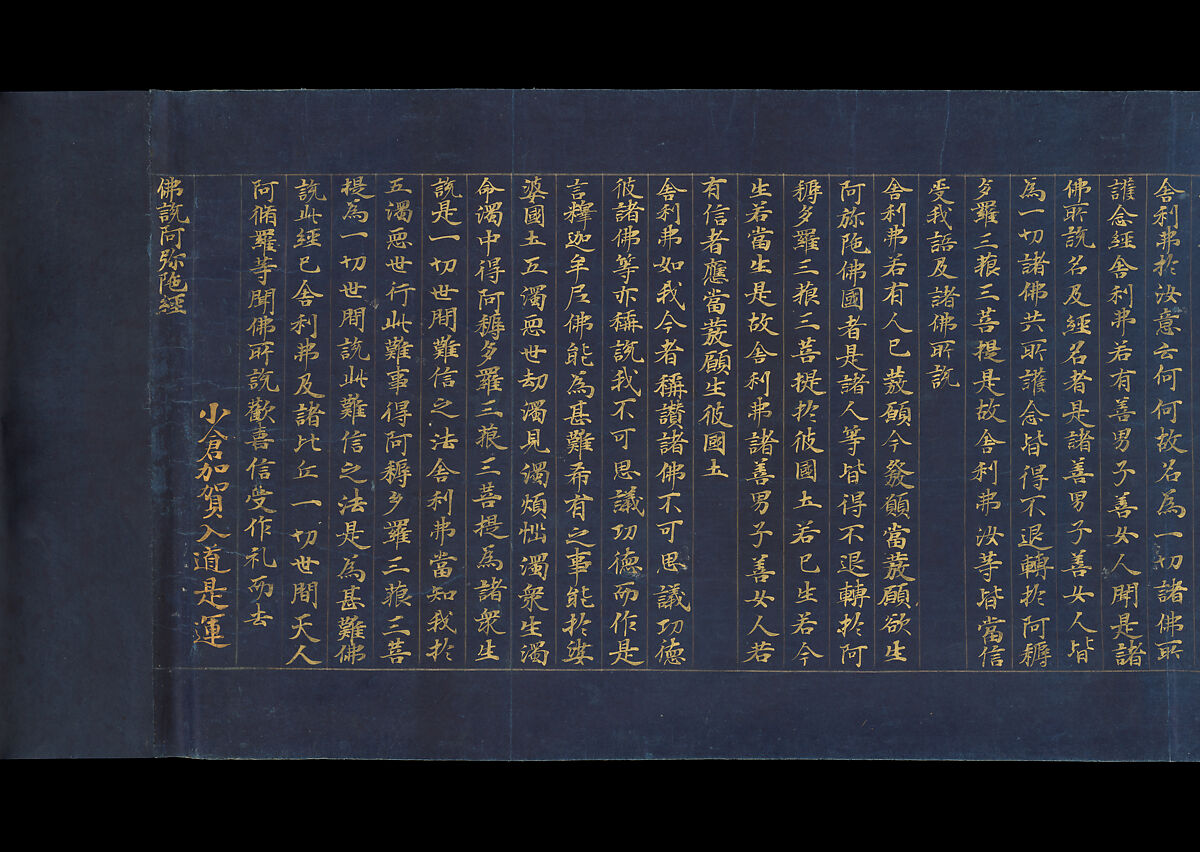 舍利弗於汝意云何何故名為一切諸佛所
護念經舍利弗若有善男子善女人聞是諸
佛所說名及經名者是諸善男子善女人皆
為一切諸佛共所護念皆得不退轉於阿耨
多羅三藐三菩提是故舍利弗汝等皆當信
受我語及諸佛所說
舍利弗若有人已發願今發願當發願欲生
阿弥陁佛國者是諸人等皆得不退轉於阿
耨多羅三藐三菩提於彼國土若已生若今
生若當生是故舍利弗諸善男子善女人若
有信者應當發願生彼國土
舍利弗如我今者稱讚諸佛不可思議功德
彼諸佛等亦稱說我不可思議功德而作是
言釋迦牟尼佛能為甚難希有之事能於娑
婆國土五濁惡世劫濁見濁煩惱濁衆生濁
命濁中得阿耨多羅三藐三菩提為諸衆生
說是一切世間難信之法舍利弗當知我於
五濁惡世行此難事得阿耨多羅三藐三菩
提為一切世間說此難信之法是為甚難佛
說此經已舍利弗及諸比丘一切世間天人
阿脩羅等聞佛所說歡喜信受作礼而去
小倉加賀入道是運
佛說阿弥陁經